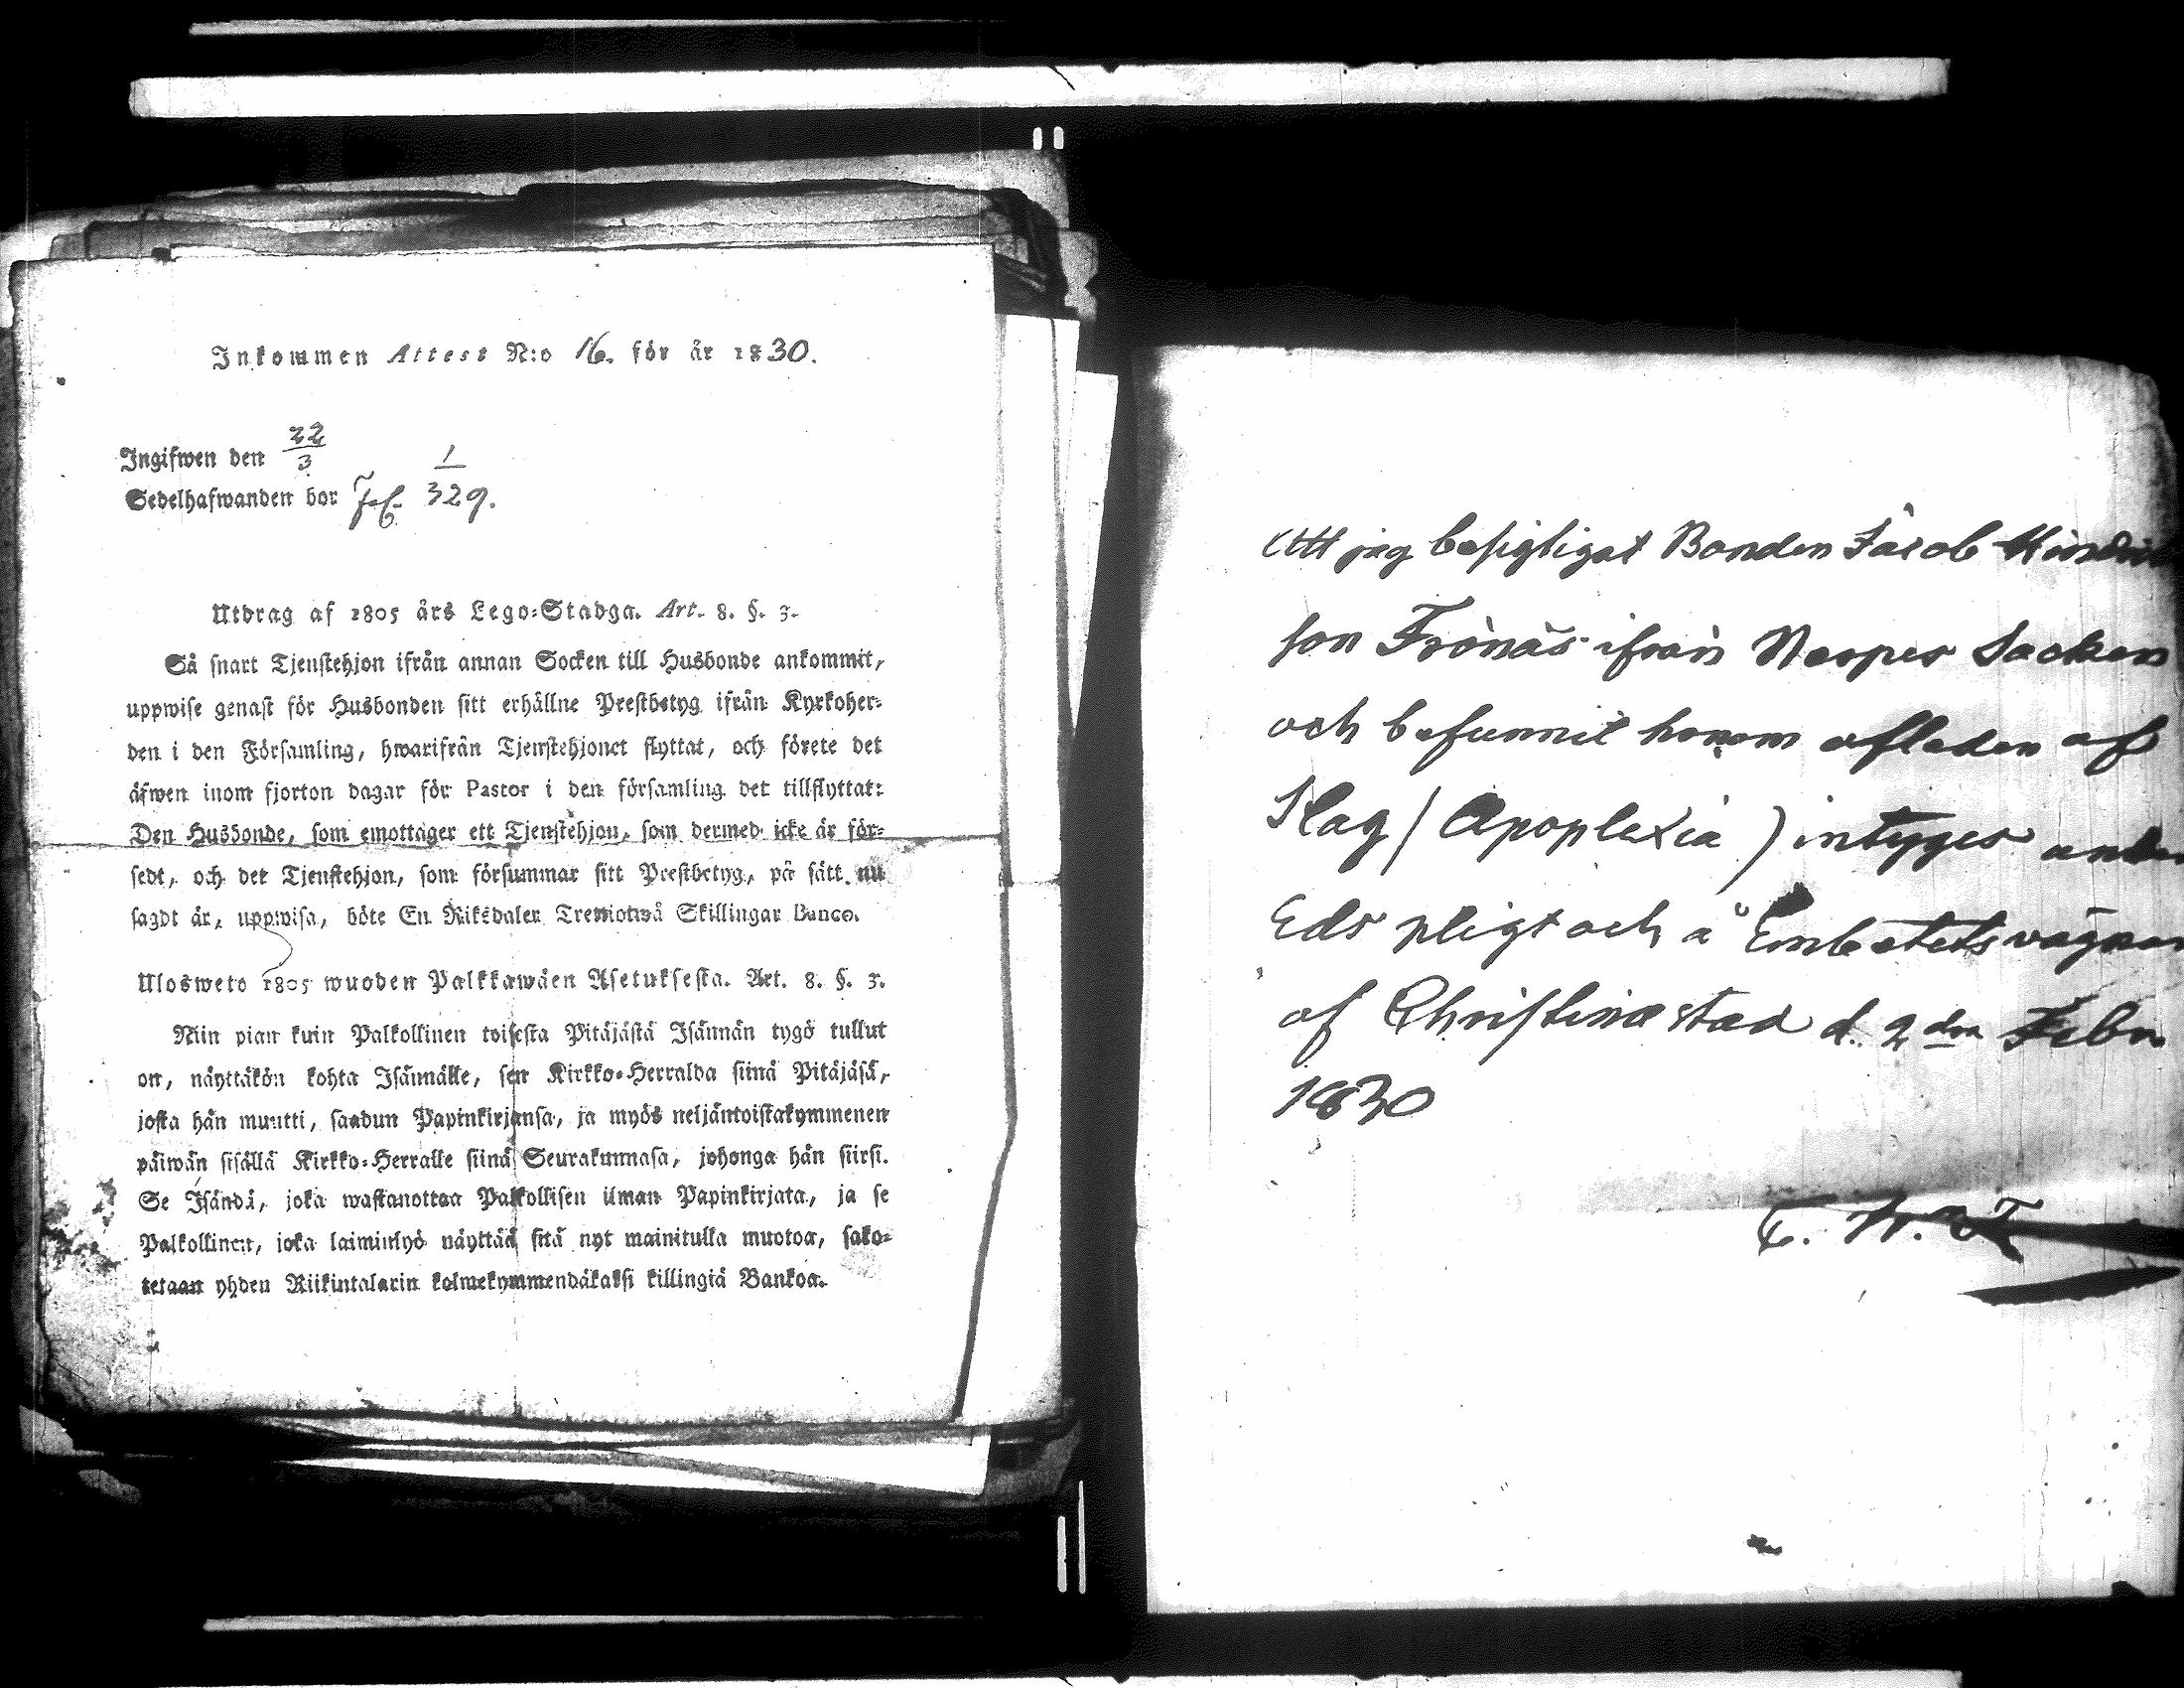 Inkommen Attest N:o 16. för år 1830.
Ingifwen den 22/3
Sedelhafwanden bor Fol. 1/329.
Utdrag af 1805 års Lego-Stadga. Art. 8. §. 3.
Så snart Tjenstehjon ifrån annan Socken till Husbonde ankommit,
uppwise genast för Husbonden sitt erhållne Prestbetyg ifrån Kyrkoher-
den i den Församling, hwarifrån Tjenstehjonet flyttat, och förete det
äfwen inom fjorton dagar för Pastor i den församling det tillflyttat:
Den Husbonde, som emottager ett Tjenstehjon, som dermed icke är för-
sedt, och det Tjenstehjon, som försummar sitt Prestbetyg, på sätt nu
sagdt är, uppwisa, böte En Riksdaler Trettiotwå Skillingar Banco.
Ulosweto 1805 wuoden Palkkawäen Asetuksesta. Art. 8. §. 3.
Niin pian kuin Palkollinen toisesta Pitäjästä Isännän tygö tullut
on, näyttäkön kohta Isännälle, sen Kirkko-Herralda siinä Pitäjäsä,
josta hän muutti, saadun Papinkirjansa, ja myös neljäntoistakymmenen
päiwän sisällä Kirkko-Herralle siinä Seurakunnasa, johonga hän siirsi.
Se Isändä, joka wastanottaa Palkollisen ilman Papinkirjata, ja se
Palkollinen, joka laiminlyö näyttää sitä nyt mainitulla muotoa, sako-
tetaan yhden Riikintalarin kolmekymmendäkaksi killingiä Bankoa.
Att jag besigtigat Bonden Jacob Hindric
son Frönäs ifrån Nerpes Socken
och befunnit honom afleden af
Slag (Apoplexia) intyges under
Eds pligt och å Embetets vägnar
af Christinæstad d. 2 den Febr
1830